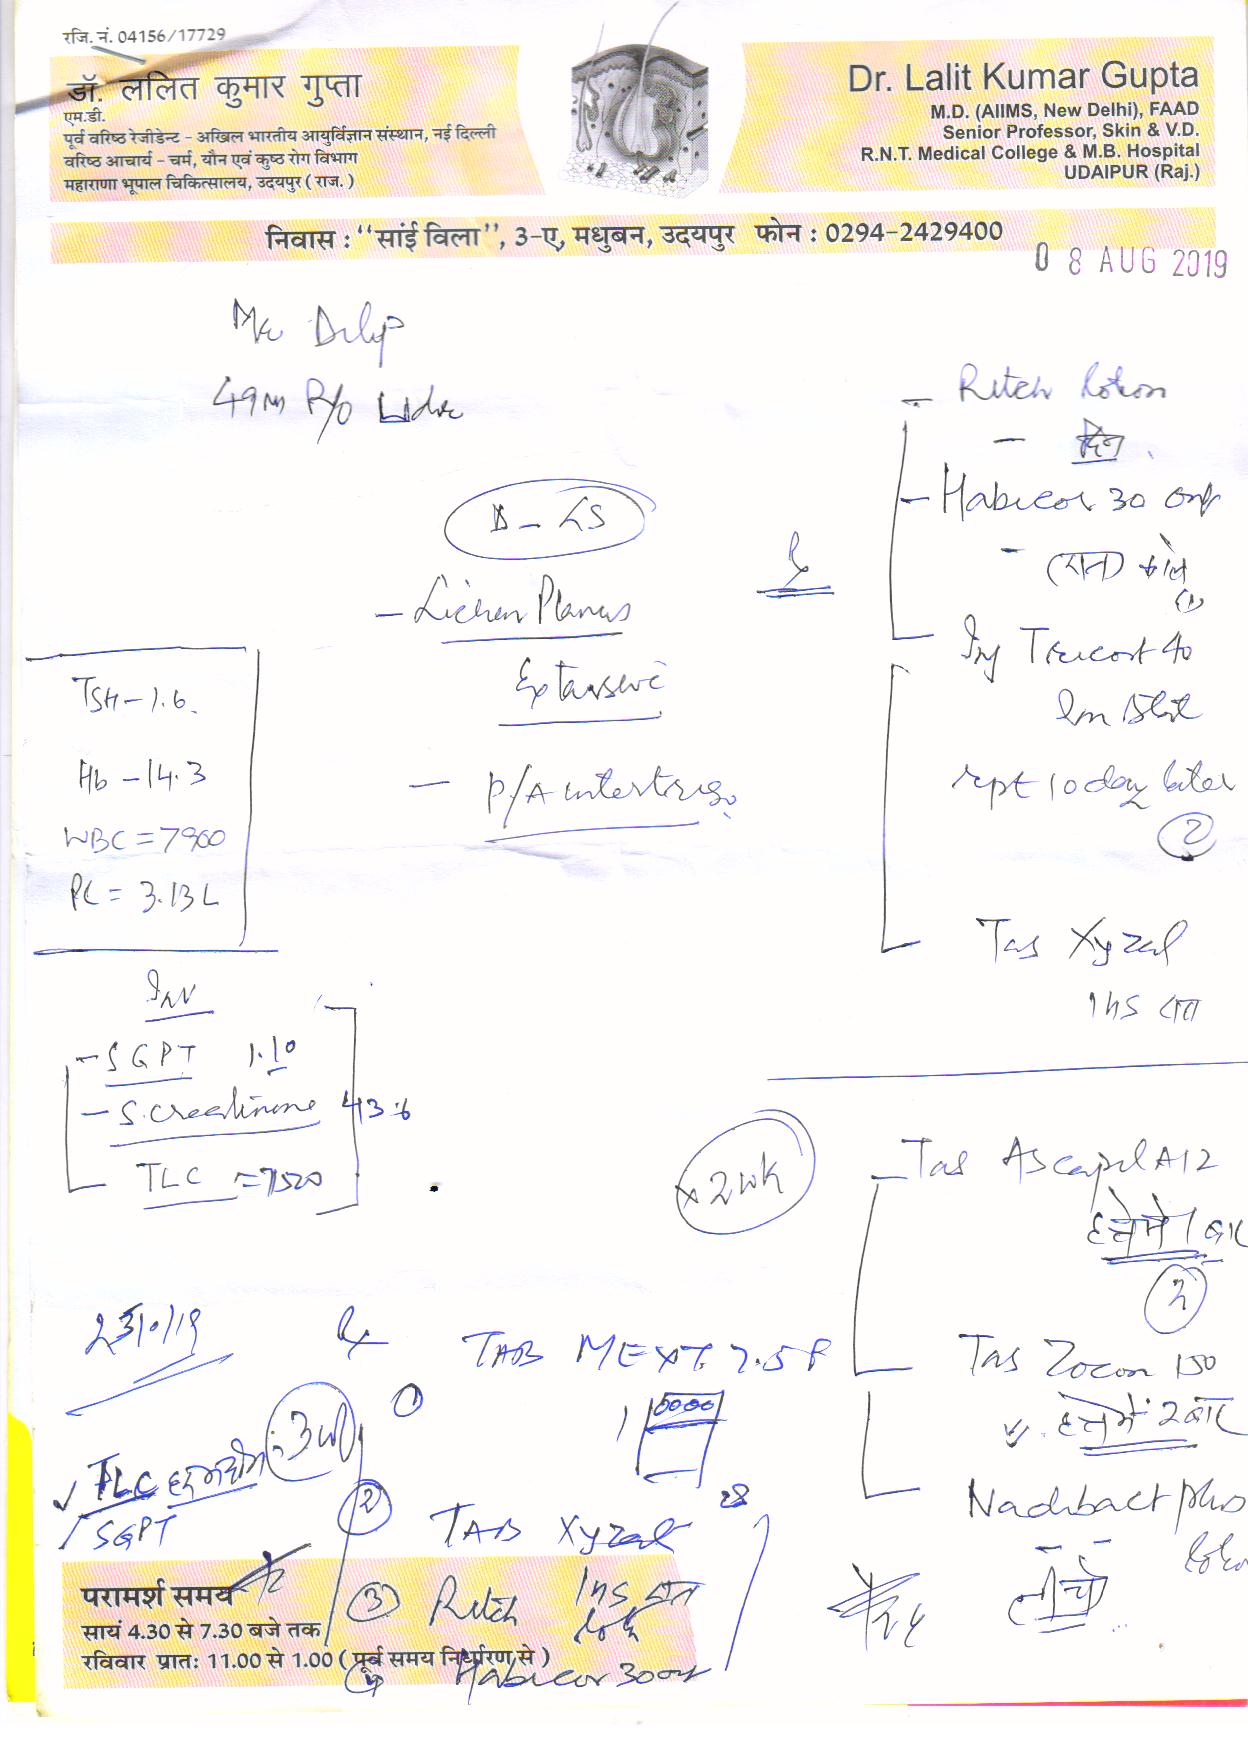 रजि. नं. 04156/17729
डॉ. ललित कुमार गुप्ता
एम.डी.
पूर्व वरिष्ठ रेजीडेन्ट - अखिल भारतीय आयुर्विज्ञान संस्थान, नई दिल्ली
वरिष्ठ आचार्य - चर्म, यौन एवं कुष्ठ रोग विभाग
महाराणा भूपाल चिकित्सालय, उदयपुर ( राज. )
Dr. Lalit Kumar Gupta
M.D. (AIIMS, New Delhi), FAAD
Senior Professor, Skin & V.D.
R.N.T. Medical College & M.B. Hospital
UDAIPUR (Raj.)
निवास : "सांई विला", 3-ए, मधुबन, उदयपुर फोन : 0294-2429400
08 AUG 2019
Mr Dilip
49m R/o
- Lichen Planus
Extensive
- P/A intertrigo
TSH - 1.6
Hb - 14.3
WBC = 7900
PC = 3.13 L
Inv
- SGPT 1.10
- S. Creatinine 43.6
TLC = 7520
Rx
- Ritch lotion
- दिन
- Habicor 30 gm
- (रात)
Inj Tricort 40
Im Stat
rpt 10 day later
(2)
Tab Xyzal
1 HS रात
x 2 wk
- Tab A12
हफ्ते में 1 बार
(2)
Tab Zocon 150
हफ्ते में 2 बार
plus
नीचे
23/10/19
Rx
① TAB MEXT 7.5
1
28
TLC
SGPT
3 W
② TAB Xyzal
1 HS रात
③ Ritch
④ Habicor 30 gm
परामर्श समय
सायं 4.30 से 7.30 बजे तक
रविवार प्रात: 11.00 से 1.00 ( पूर्व समय निर्धारण से )